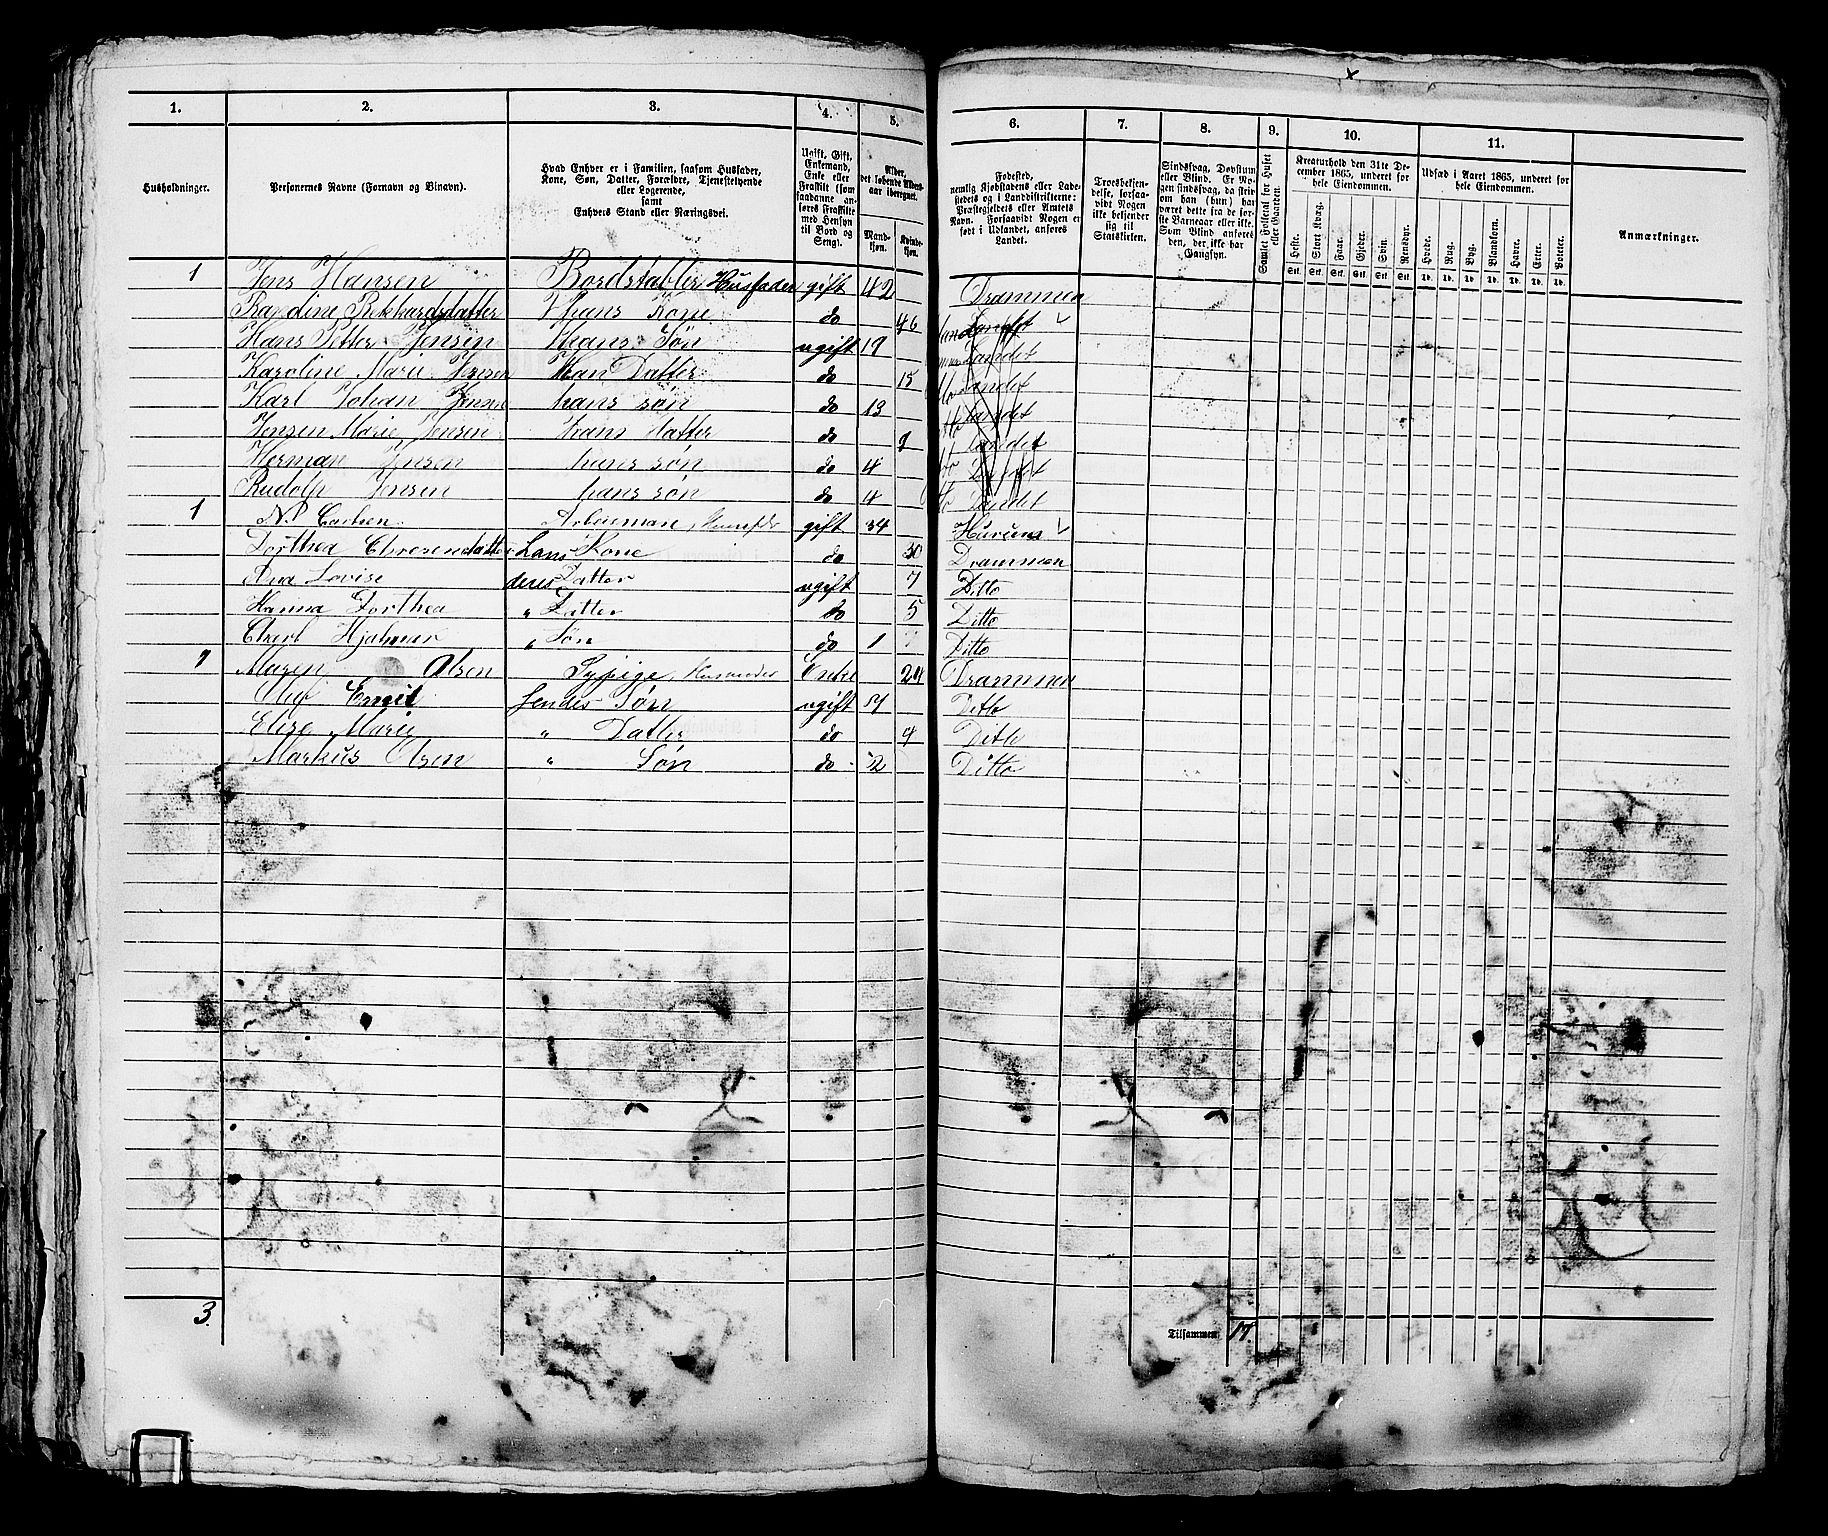 1. 2. 3. 4. 5. 6. 7. 8. 9. 10. 11.
Husholdninger.
Personernes Navne (Fornavn og Binavn).
Hvad Enhver er i Familien, saasom Husfader,
Kone, Søn, Datter, Forældre, Tjenestetyende
eller Logerende,
samt
Enhvers Stand eller Næringsvei.
Ugift, Gift,
Enkemand,
Enke eller
Fraskilt (som
saadanne an-
føres Fraskilte
med Hensyn
til Bord og
Seng).
Alder,
det løbende Alders-
aar iberegnet.
Mand-
kjøn.
Kvinde-
kjøn.
Fødested,
nemlig Kjøbstadens eller Lade-
stedets og i Landdistrikterne:
Præstegjeldets eller Amtets
Navn. Forsaavidt Nogen er
født i Udlandet, anføres
Landet.
Troesbekjen-
delse, forsaa-
vidt Nogen
ikke bekjender
sig til
Statskirken.
Sindssvag, Døvstum
eller Blind. Er No-
gen sindssvag, da skriv
om han (hun) har
været dette fra de før-
ste Barneaar eller ikke.
Som Blind anføres
den, der ikke har
Gangsyn.
Samlet Folketal for Huset
eller Gaarden.
Kreaturhold den 31te De-
cember 1865, underet for
hele Eiendommen.
Heste. Stort Kvæg. Faar. Gjeder. Svin. Rensdyr.
Stk. Stk. Stk. Stk. Stk. Stk.
Udsæd i Aaret 1865, underet for
hele Eiendommen.
Hvede. Rug. Byg. Blandkorn. Havre. Erter. Poteter.
Td. Td. Td. Td. Td. Td. Td.
Anmærkninger.
1 Jens Hansen Bordstabler Husfader gift 42 Drammen
hans Kone do 46
Hans Petter Jensen hans Søn ugift Landet
Karoline Marie Jensen Datter do 15 Landet
Karl Johan Jensen hans søn do 13 Landet
Jensen Marie Jensen hans datter do Landet
Herman Jensen hans søn do 4
Rudolp Jensen hans søn do 4 Landet
1 N. Carlsen gift 34 Hurum
Dorthea Kone do 30 Drammen
Ana Lovise deres Datter ugift 7 Ditto
Hanna Dorthea " Datter do 5 Ditto
Hjalmer " Søn do 1 Ditto
1 Maren Olsen Sypige Enke 29 Drammen
Emil Søn ugift Ditto
Elise Marie " Datter do 4 Ditto
Markus Olsen " Søn do 2 Ditto
3.
Tilsammen 17.